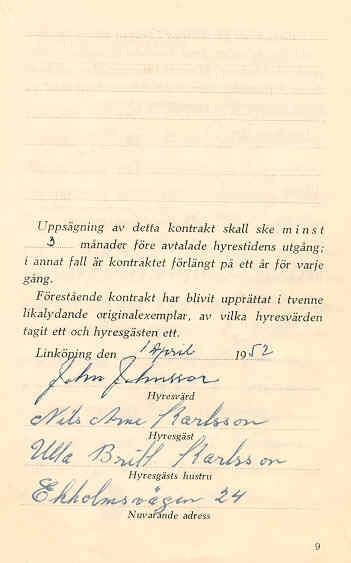 Uppsägning av detta kontrakt skall ske minst
3 månader före avtalade hyrestidens utgång;
i annat fall är kontraktet förlängt på ett år för varje
gång.
Förestående kontrakt har blivit upprättat i tvenne
likalydande originalexemplar, av vilka hyresvärden
tagit ett och hyresgästen ett.
Linköping den 1 April 1952
John Johnsson
Hyresvärd
Nils Arne Karlsson
Hyresgäst
Ulla Britt Karlsson
Hyresgästs hustru
Ekholmsvägen 24
Nuvarande adress
9